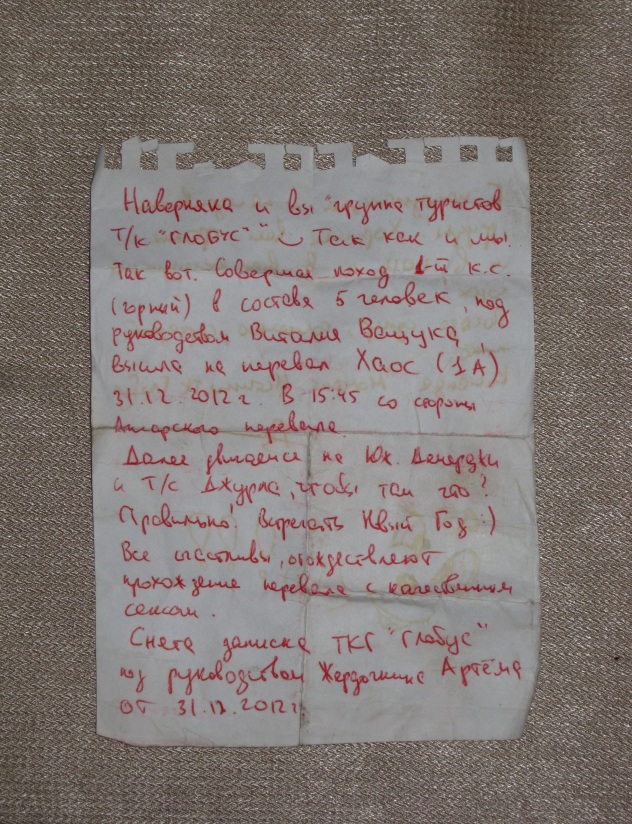 Наверняка и вы "группа туристов
Т/к "ГЛОБУС" Так как и мы.
Так вот. Совершая поход 1-й к.с.
(горный) в составе 5 человек, под
руководством Виталия Ващука,
вышла на перевал Хаос (1А)
31.12.2012г. В 15:45 со стороны
Ангарского перевала.
Далее двигаемся на Юж. Демерджи
и Т/с Джурла, чтобы там что?
Правильно! Встречать Нвый Год :)
Все счастливы, отождествляют
прохождение перевала с качественным
сексом.
Снета записка ТКГ "Глобус"
под руководством Артёма
от 31.12.2012г